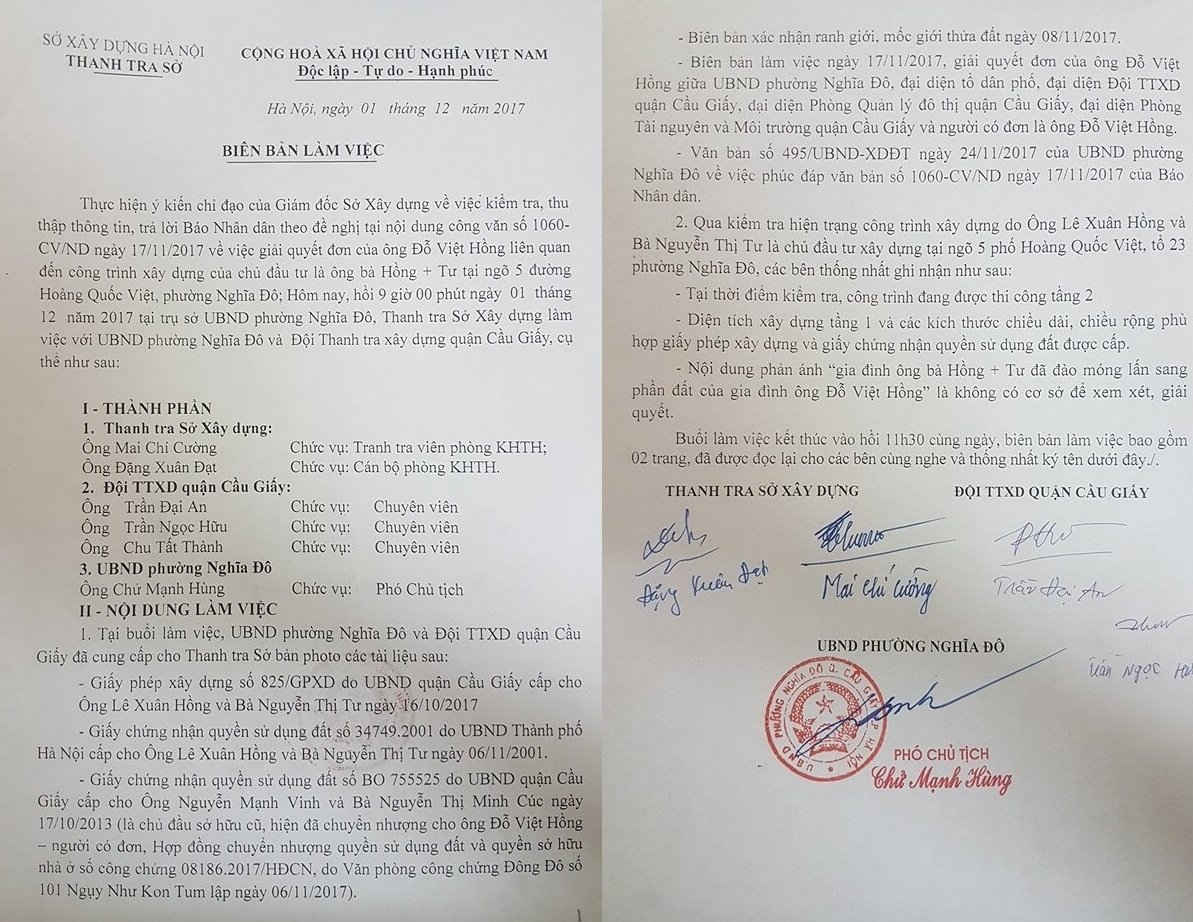 SỞ XÂY DỰNG HÀ NỘI
THANH TRA SỞ
CỘNG HOÀ XÃ HỘI CHỦ NGHĨA VIỆT NAM
Độc lập - Tự do - Hạnh phúc
Hà Nội, ngày 01 tháng 12 năm 2017
BIÊN BẢN LÀM VIỆC
Thực hiện ý kiến chỉ đạo của Giám đốc Sở Xây dựng về việc kiểm tra, thu
thập thông tin, trả lời Báo Nhân dân theo đề nghị tại nội dung công văn số 1060-
CV/ND ngày 17/11/2017 về việc giải quyết đơn của ông Đỗ Việt Hồng liên quan
đến công trình xây dựng của chủ đầu tư là ông bà Hồng + Tư tại ngõ 5 đường
Hoàng Quốc Việt, phường Nghĩa Đô; Hôm nay, hồi 9 giờ 00 phút ngày 01 tháng
12 năm 2017 tại trụ sở UBND phường Nghĩa Đô, Thanh tra Sở Xây dựng làm
việc với UBND phường Nghĩa Đô và Đội Thanh tra xây dựng quận Cầu Giấy, cụ
thể như sau:
I - THÀNH PHẦN
1. Thanh tra Sở Xây dựng:
Ông Mai Chí Cường Chức vụ: Tranh tra viên phòng KHTH;
Ông Đặng Xuân Đạt Chức vụ: Cán bộ phòng KHTH.
2. Đội TTXD quận Cầu Giấy:
Ông Trần Đại An Chức vụ: Chuyên viên
Ông Trần Ngọc Hữu Chức vụ: Chuyên viên
Ông Chu Tất Thành Chức vụ: Chuyên viên
3. UBND phường Nghĩa Đô
Ông Chử Mạnh Hùng Chức vụ: Phó Chủ tịch
II - NỘI DUNG LÀM VIỆC
1. Tại buổi làm việc, UBND phường Nghĩa Đô và Đội TTXD quận Cầu
Giấy đã cung cấp cho Thanh tra Sở bản photo các tài liệu sau:
- Giấy phép xây dựng số 825/GPXD do UBND quận Cầu Giấy cấp cho
Ông Lê Xuân Hồng và Bà Nguyễn Thị Tư ngày 16/10/2017
- Giấy chứng nhận quyền sử dụng đất số 34749.2001 do UBND Thành phố
Hà Nội cấp cho Ông Lê Xuân Hồng và Bà Nguyễn Thị Tư ngày 06/11/2001.
- Giấy chứng nhận quyền sử dụng đất số BO 755525 do UBND quận Cầu
Giấy cấp cho Ông Nguyễn Mạnh Vinh và Bà Nguyễn Thị Minh Cúc ngày
17/10/2013 (là chủ đầu sở hữu cũ, hiện đã chuyển nhượng cho ông Đỗ Việt Hồng
– người có đơn, Hợp đồng chuyển nhượng quyền sử dụng đất và quyền sở hữu
nhà ở số công chứng 08186.2017/HĐCN, do Văn phòng công chứng Đông Đô số
101 Ngụy Như Kon Tum lập ngày 06/11/2017).
1
- Biên bản xác nhận ranh giới, mốc giới thửa đất ngày 08/11/2017.
- Biên bản làm việc ngày 17/11/2017, giải quyết đơn của ông Đỗ Việt
Hồng giữa UBND phường Nghĩa Đô, đại diện tổ dân phố, đại diện Đội TTXD
quận Cầu Giấy, đại diện Phòng Quản lý đô thị quận Cầu Giấy, đại diện Phòng
Tài nguyên và Môi trường quận Cầu Giấy và người có đơn là ông Đỗ Việt Hồng.
- Văn bản số 495/UBND-XDĐT ngày 24/11/2017 của UBND phường
Nghĩa Đô về việc phúc đáp văn bản số 1060-CV/ND ngày 17/11/2017 của Báo
Nhân dân.
2. Qua kiểm tra hiện trạng công trình xây dựng do Ông Lê Xuân Hồng và
Bà Nguyễn Thị Tư là chủ đầu tư xây dựng tại ngõ 5 phố Hoàng Quốc Việt, tổ 23
phường Nghĩa Đô, các bên thống nhất ghi nhận như sau:
- Tại thời điểm kiểm tra, công trình đang được thi công tầng 2
- Diện tích xây dựng tầng 1 và các kích thước chiều dài, chiều rộng phù
hợp giấy phép xây dựng và giấy chứng nhận quyền sử dụng đất được cấp.
- Nội dung phản ánh “gia đình ông bà Hồng + Tư đã đào móng lấn sang
phần đất của gia đình ông Đỗ Việt Hồng” là không có cơ sở để xem xét, giải
quyết.
Buổi làm việc kết thúc vào hồi 11h30 cùng ngày, biên bản làm việc bao gồm
02 trang, đã được đọc lại cho các bên cùng nghe và thống nhất ký tên dưới đây./.
THANH TRA SỞ XÂY DỰNG ĐỘI TTXD QUẬN CẦU GIẤY
Đặng Xuân Đạt Mai Chí Cường Trần Đại An
UBND PHƯỜNG NGHĨA ĐÔ
Trần Ngọc
UBND PHƯỜNG NGHĨA ĐÔ Q. CẦU GIẤY T.P HÀ NỘI
PHÓ CHỦ TỊCH
Chử Mạnh Hùng